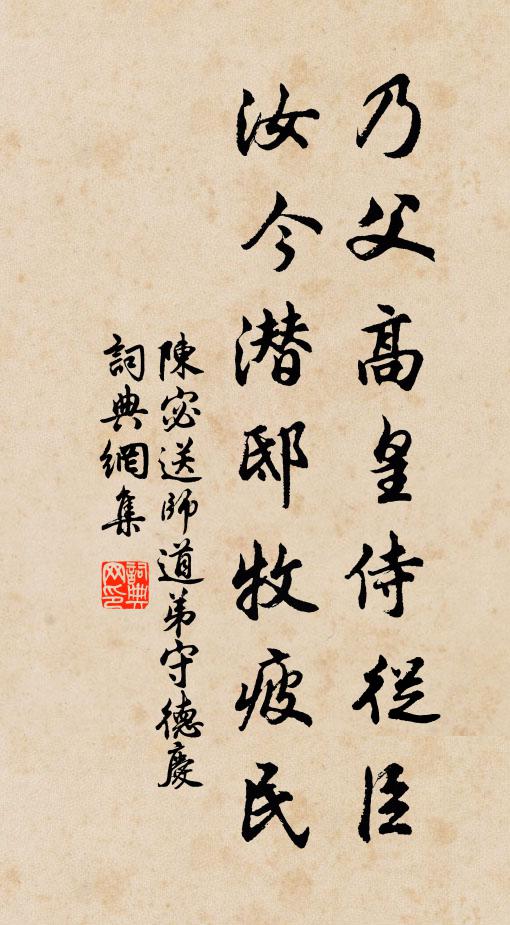 乃父高皇侍從臣
汝今潛邸牧疲民
陳宓送師道弟守德慶
詞典網集
詞典网印